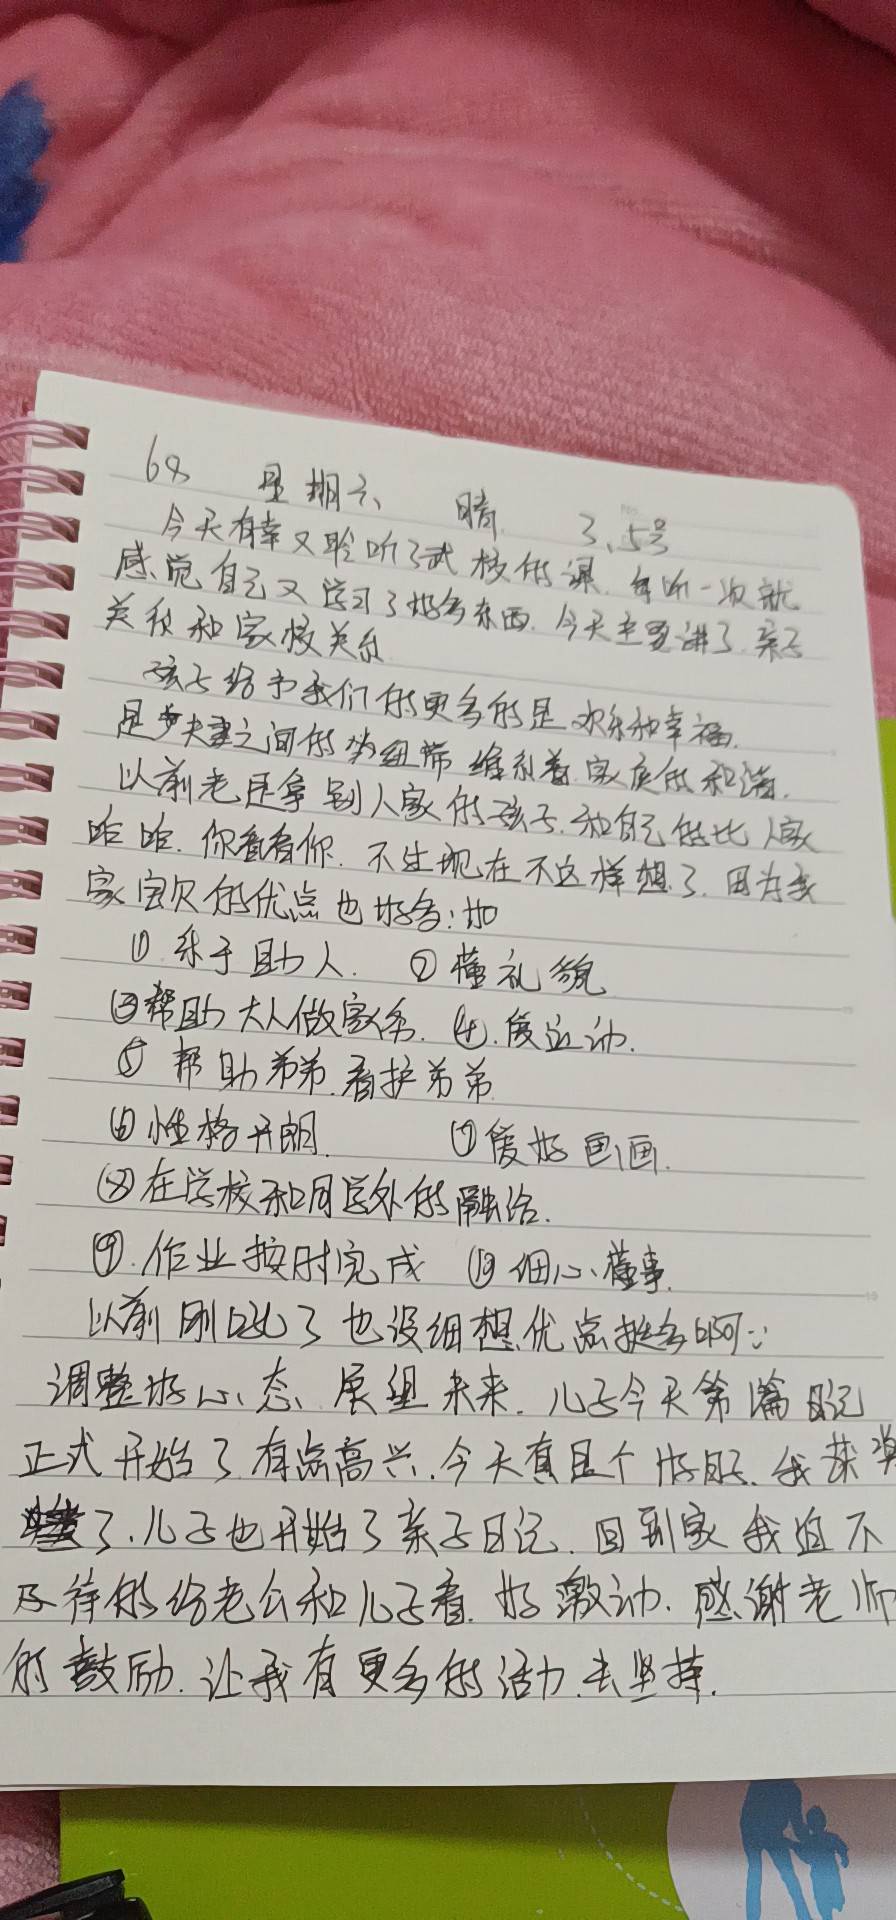 68 星期六 晴 3.5号
今天有幸又聆听了武校的课.每听一次就
感觉自己又学习了好多东西.今天主要讲了.亲子
关系和家校关系
孩子给予我们的更多的是欢乐和幸福.
是夫妻之间的纽带 维系着.家庭的和谐.
以前老是拿别人家的孩子.和自己的比 人家
咱咱.你看看你.不过现在不这样想了.因为我
家宝贝的优点也好多:如
①乐于助人. ②懂礼貌
③帮助大人做家务. ④.爱运动.
⑤帮助弟弟.看护弟弟.
⑥性格开朗. ⑦爱好画画.
⑧在学校和同学处的融洽.
⑨.作业按时完成 ⑩细心、懂事.
以前 了也没细想.优点挺多啊∵
调整好心态、展望未来.儿子今天第1篇日记
正式开始了.有点高兴.今天真是个好日子.我获奖
了.儿子也开始了亲子日记.回到家我迫不
及待的给老公和儿子看.好激动.感谢老师
的鼓励.让我有更多的活力.去坚持.